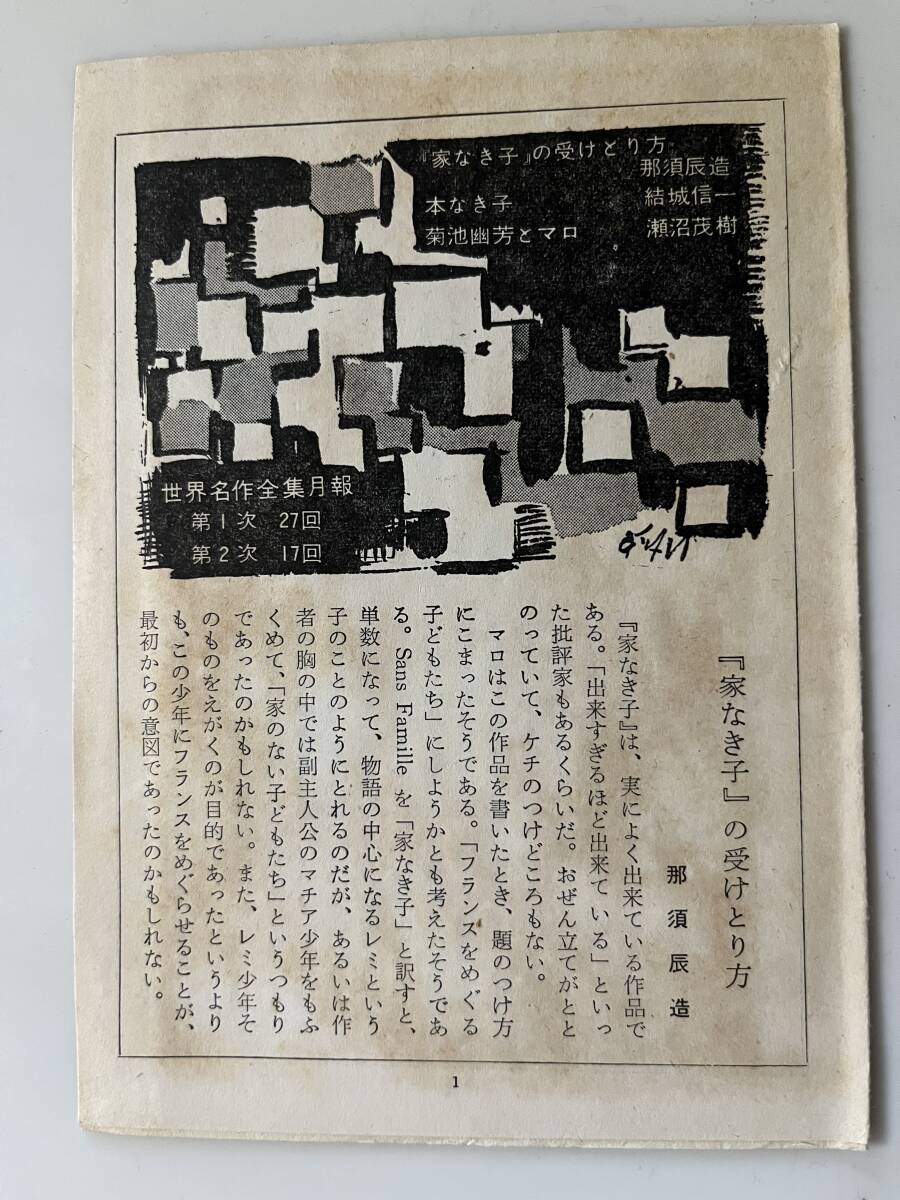 『家なき子』の受けとり方
那須辰造
本なき子
結城信一
菊池幽芳とマロ
瀬沼茂樹
世界名作全集月報
第1次 27回
第2次 17回
『家なき子』の受けとり方
那須辰造
『家なき子』は、実によく出来ている作品で
ある。「出来すぎるほど出来て いる」といっ
た批評家もあるくらいだ。おぜん立てがとと
のっていて、ケチのつけどころもない。
マロはこの作品を書いたとき、題のつけ方
にこまったそうである。「フランスをめぐる
子どもたち」にしようかとも考えたそうであ
る。Sans Famille を「家なき子」と訳すと、
単数になって、物語の中心になるレミという
子のことのようにとれるのだが、あるいは作
者の胸の中では副主人公のマチア少年をもふ
くめて、「家のない子どもたち」というつもり
であったのかもしれない。また、レミ少年そ
のものをえがくのが目的であったというより
も、この少年にフランスをめぐらせることが、
最初からの意図であったのかもしれない。
1